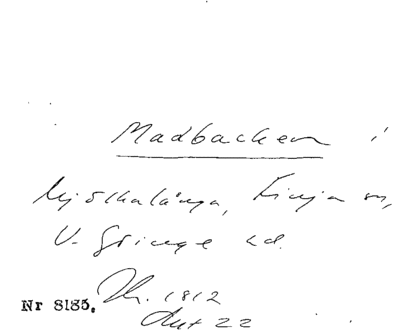 Madbacken i
Mjölkalånga, Finja sn,
V. Göinge hd.
Nr 8185. Th. 1812
Ant 22